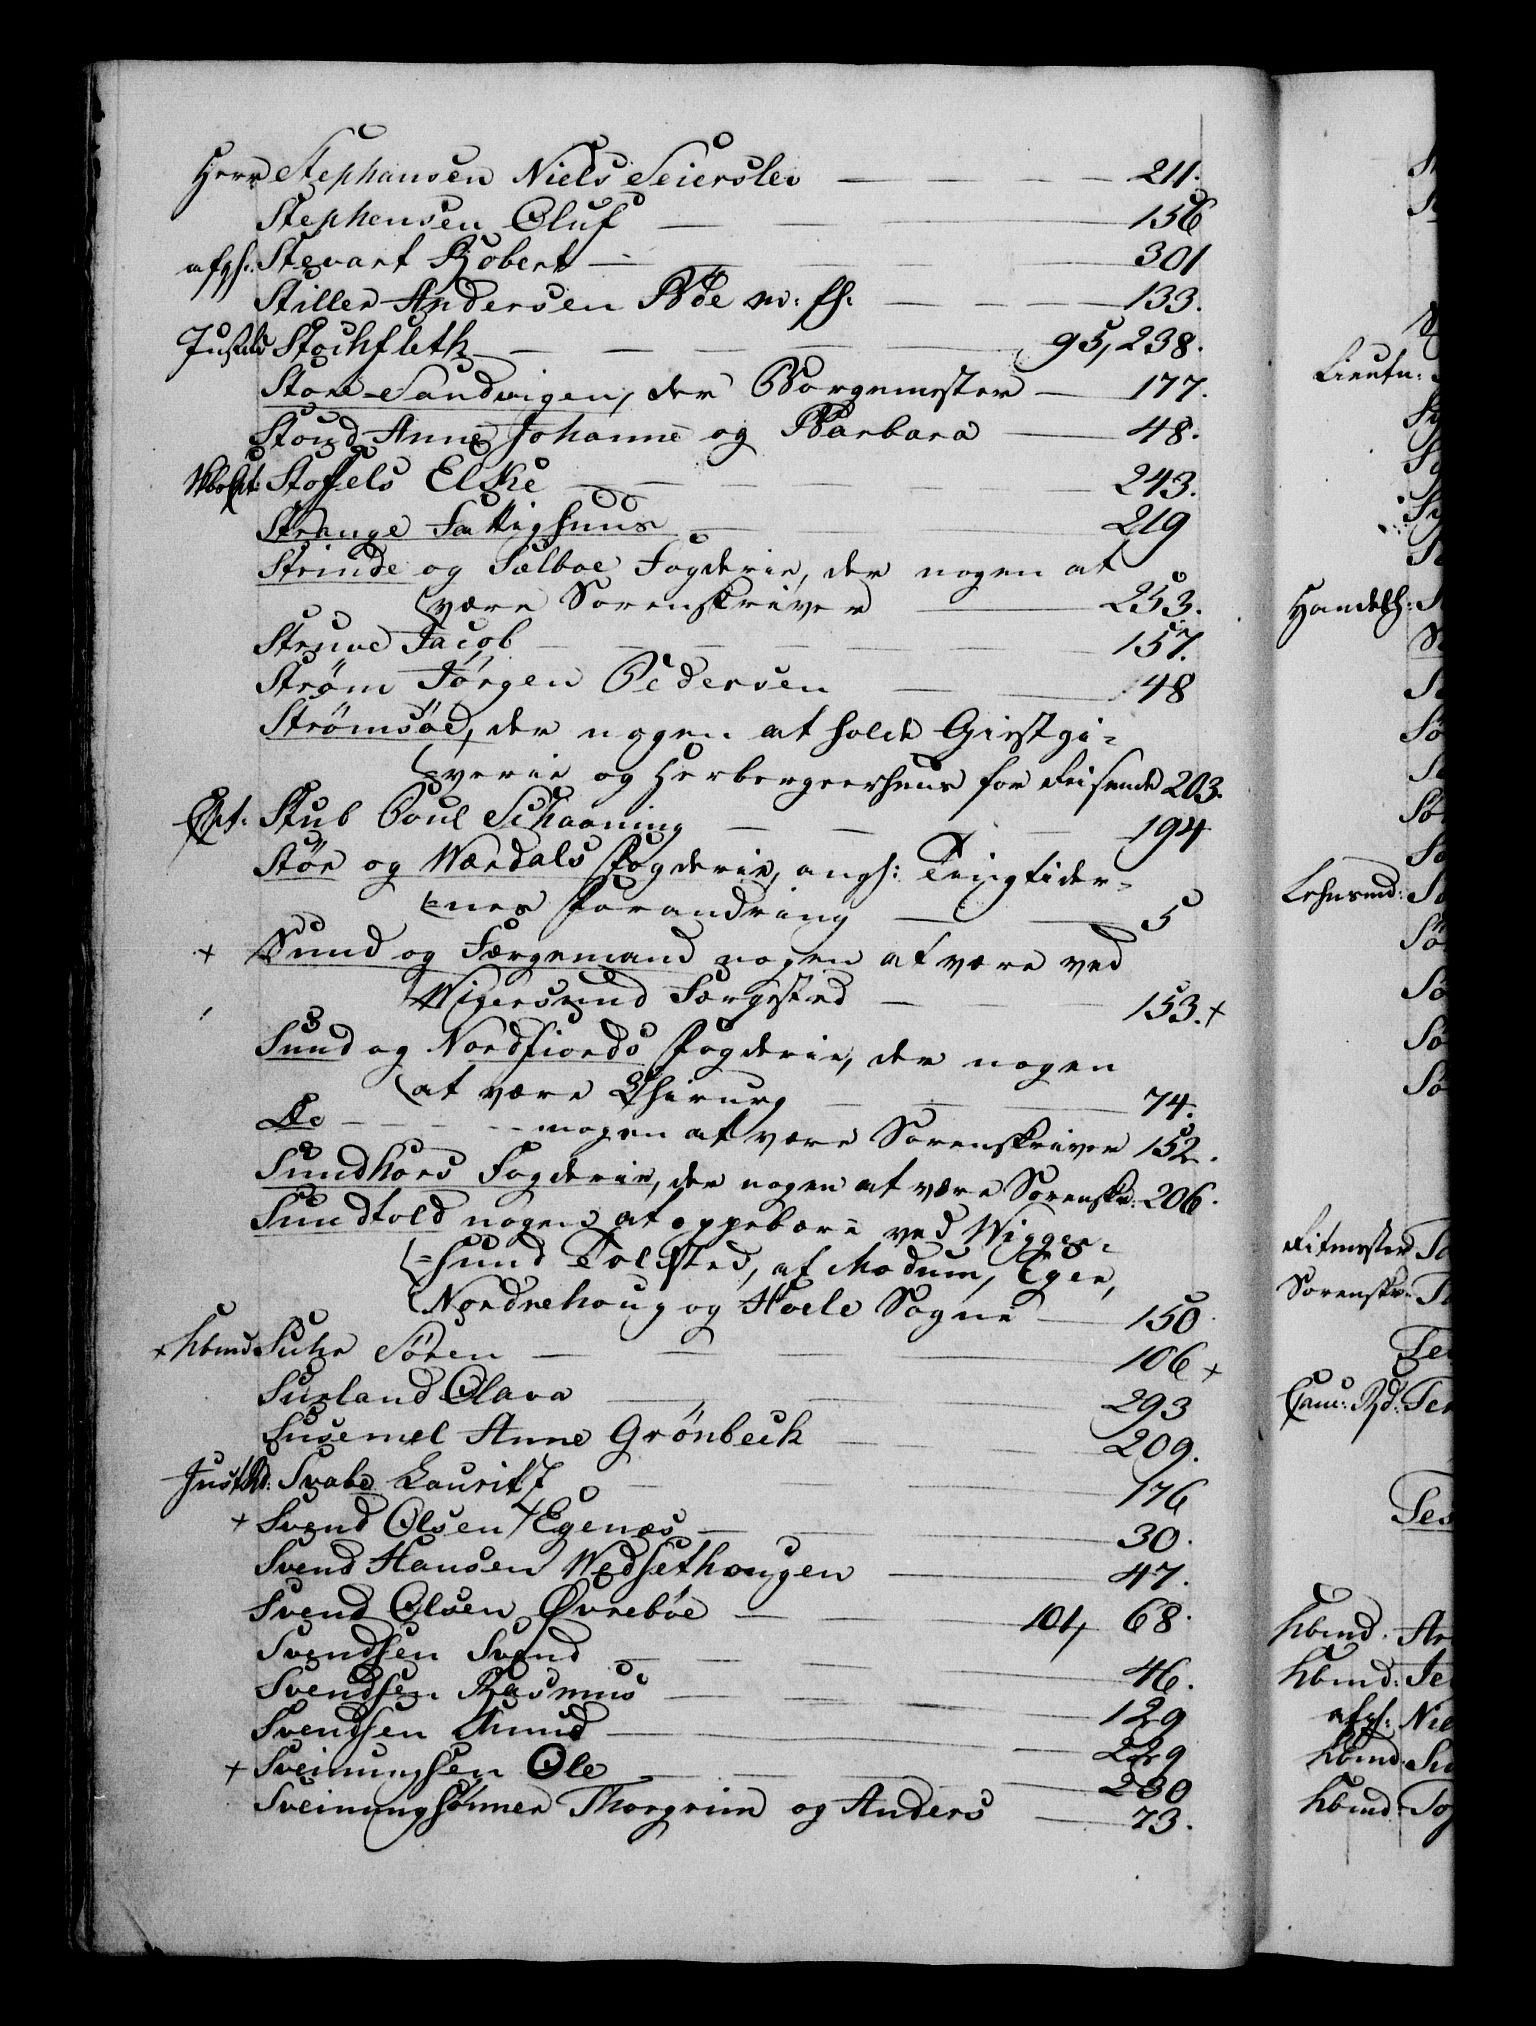 Herr Stephansen Niels Seierslev — — — — 211.
Stephensen Oluf — — — 156
afgf: Stevart Robert — — — — 301
Stiller Andersen Böe m: fl. — — — 133.
Justrd Stochfleth — — — — 95, 238.
Store-Sandvigen, der Borgemester — 177.
Stoud Anne Johanne og Barbara — 48.
Stoffels Elske — — — — 243.
Strange Fattighuus — — — 219
Strinde og Sælboe Fogderie, der nogen at
være Sorenskriver — — 253.
Struve Jacob — — — — 157.
Strøm Jørgen Pedersen — — 148
Strömsöe, der nogen at holde Giestgi=
=verie og Herbergeerhuus for Reisende 203.
Capt. Stub Poul Schaaning — — — 194
Stör og Værdals Fogderie, angf: Tingtider=
=nes Forandring — — 5
+ Sund og Færgemand nogen at være ved
Vigersund Færgested — — — 153. +
Sund og Nordfiords Fogderie, der nogen
at være Chirurg — — — 74.
Do — — — nogen at være Sorenskriver 152.
Sundhors Fogderie, der nogen at være Sorenskr: 206.
Sundtold nogen at oppebære ved Wigger=
=sund Toldsted, af Modum, Eger,
Nordrehoug og Hole Sogne — 150
+ Kbmd Suhr Sören — — — — 106 +
Surland Olava — — — — 293
Susemel Anne Grönbech — — — 209.
Just Rd: Svabe Lauritz — — — 176
+ Svend Olsen Egenæs — — — 30.
Svend Hansen Wedsethougen — — 47.
Svend Olsen Øvrebøe — — 101, 68.
Svendsen Svend — — — — 46.
Svendsen Rasmus — — — — 129
Svendsen Knud — — — — 229
+ Sveinungsen Ole — — — — 230
Sveinungsönner Thorgrim og Anders — 73.
Lieutn:
Handelsh:
Lehnsmd:
Ritmester
Sorenskr:
Cam: Rd:
Kbmd.
Kbmd:
afgf: Nie
Kbmd.
Kbmd: